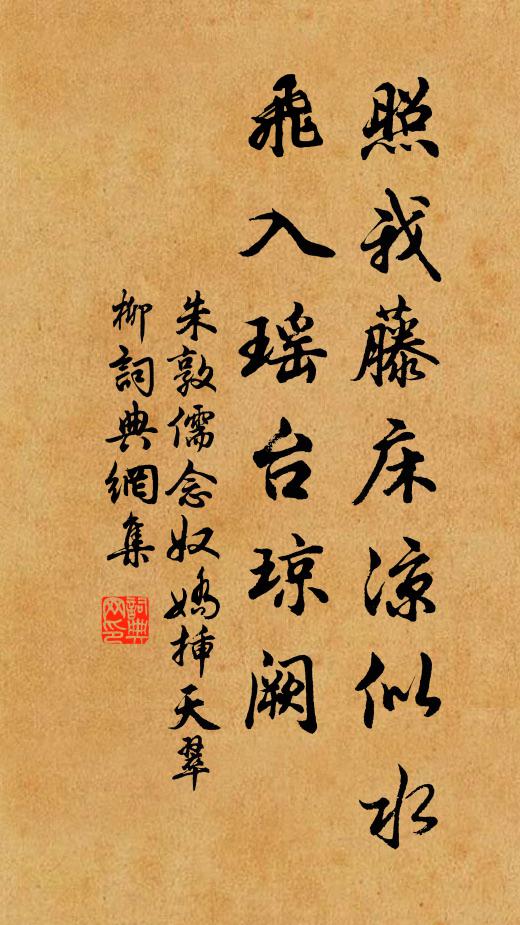 照我藤床凉似水
飛入瑶台琼阙
朱敦儒念奴嬌插天翠
柳詞典網集
詞典网印